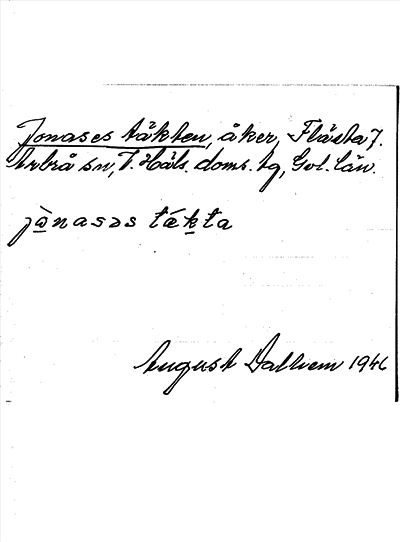 Jonases täkten, åker, Flästa 7.
Arbrå sn, V. Häls. doms. tg, Gvl. län.
jònasəs tǽkta
August Dalhem 1946